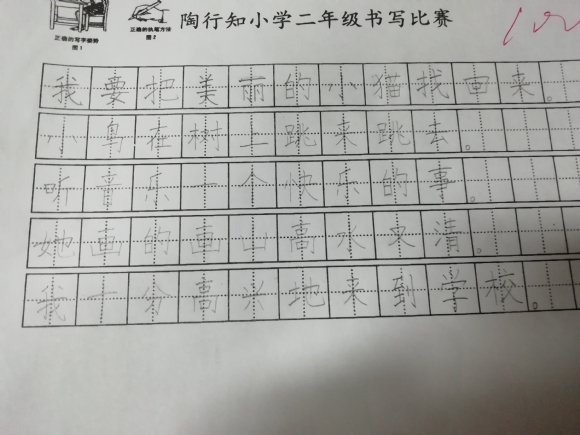 陶行知小学二年级书写比赛
正确的写字姿势
图1
正确的执笔方法
图2
100
我要把美丽的小猫找回来。
小鸟在树上跳来跳去。
听音乐一个快乐的事。
她画的画山高水又清。
我十分高兴地来到学校。